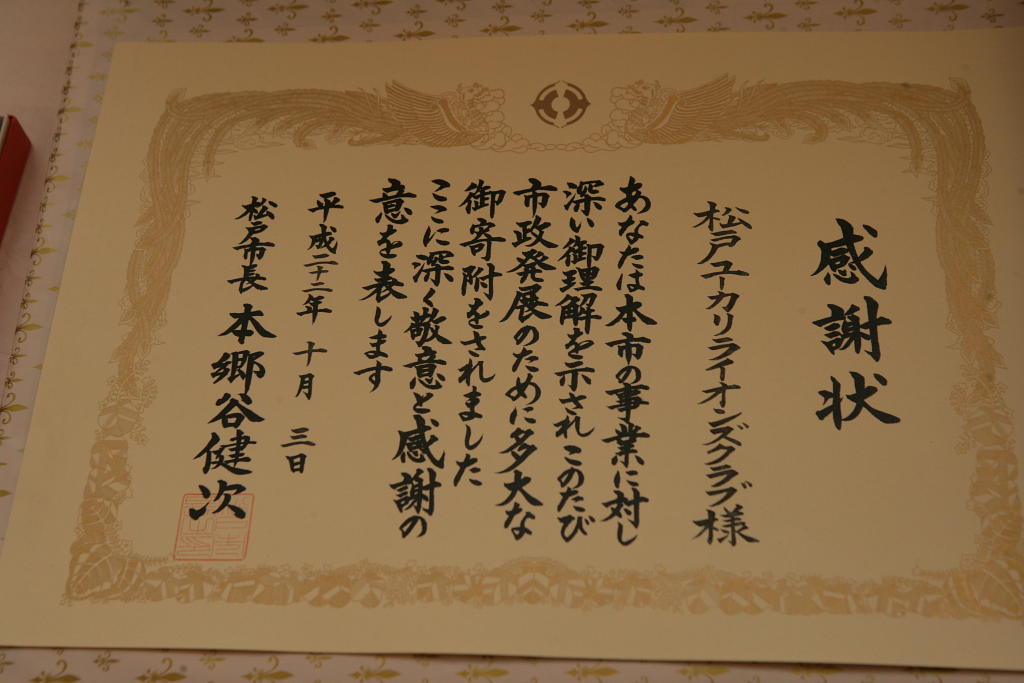 感謝状
松戸ユーカリライオンズクラブ様
あなたは本市の事業に対し
深い御理解を示されこのたび
市政発展のために多大な
御寄附をされました
ここに深く敬意と感謝の
意を表します
平成二十二年 十月 三日
松戸市長 本郷谷健次